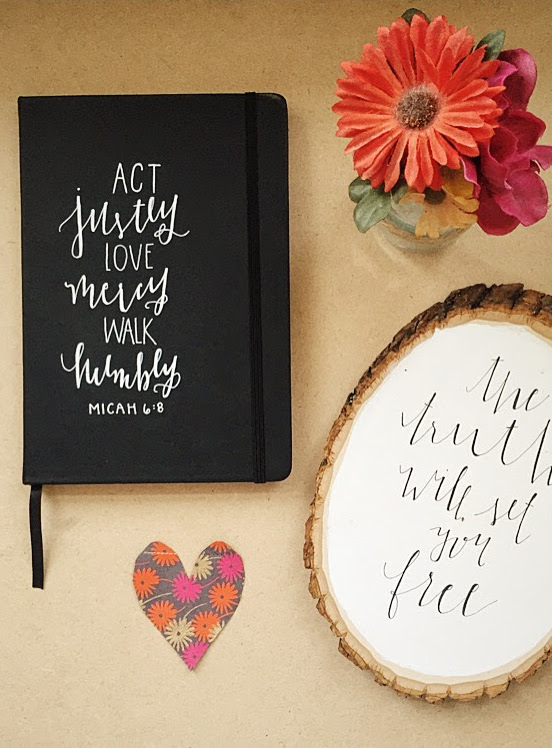 ACT
justly
LOVE
mercy
WALK
humbly
MICAH 6:8
the
truth
will set
you
free